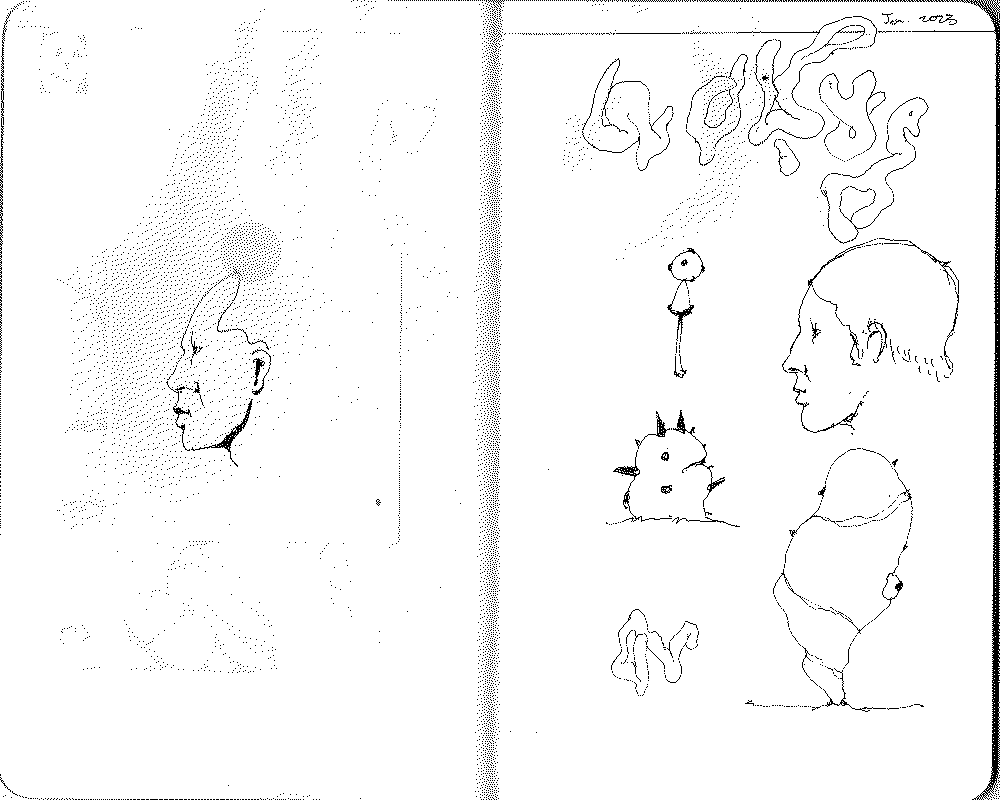 Jan. 2023